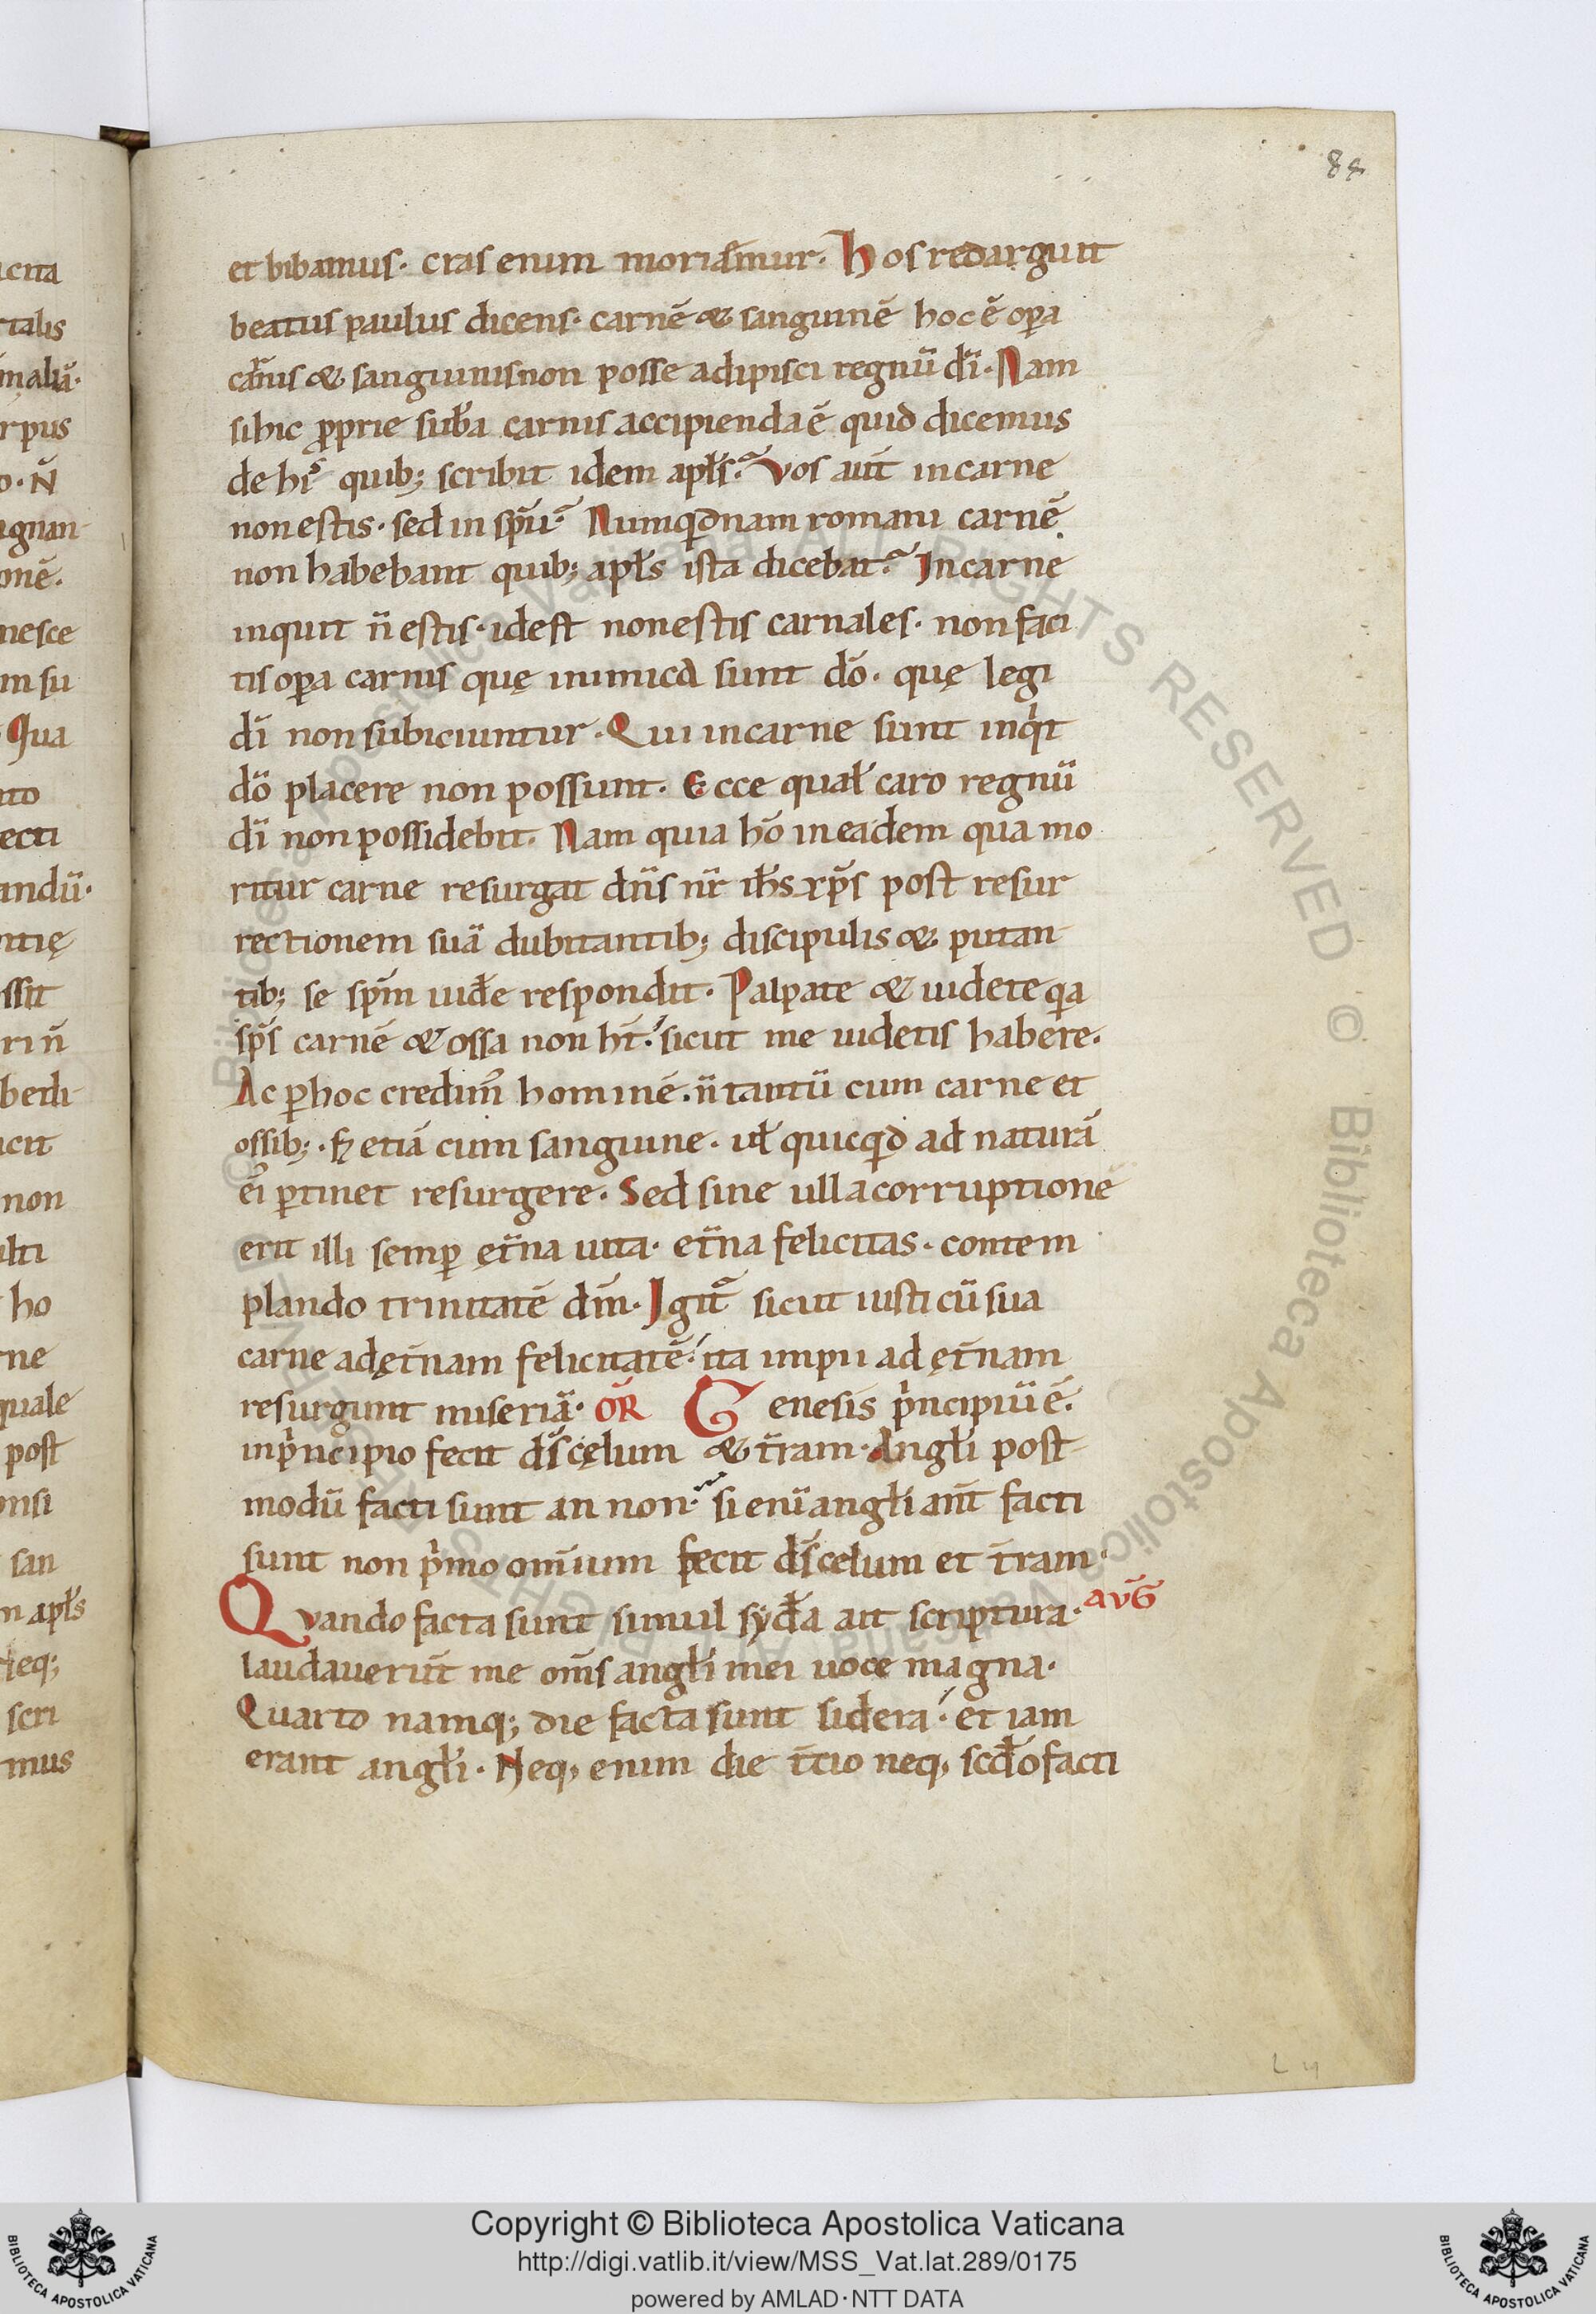 88
et bibamus · cras enim moriamur · Hos redarguit
beatus paulus dicens · carnē & sanguinē hoc ē opa
carnis & sanguinis non posse adipisci regnū dī · Nam
si hic pprie suba carnis accipienda ē quid dicemus
de his quib; scribit idem apłs · Vos aut̄ in carne
non estis · sed in spū · Numqd nam romani carnē
non habebant quib; apłs ista dicebat · In carne
inquit n̄ estis · id est non estis carnales · non faci
tis opa carnis quę inimica sunt dō · quę legi
dī non subiciuntur · Qui in carne sunt inqt
dō placere non possunt · Ecce qual' caro regnū
dī non possidebit · Nam quia hō in eadem qua mo
ritur carne resurgat dn̄s nr̄ ihs xp̄s post resur
rectionem suā dubitantib; discipulis & putan
tib; se spm̄ uidere respondit · Palpate & uidete qa
sp̄s carnē & ossa non hn̄t · sicut me uidetis habere ·
Ac p hoc credim' hominē · n̄ tantū cum carne et
ossib; · s; etiā cum sanguine · ul' quicqd ad naturā
ei' ptinet resurgere · Sed sine ulla corruptione
erit illi semp ęt̄na uita · et̄na felicitas · contem
plando trinitatē dm̄ · Igit' sicut iusti cū sua
carne ad ęt̄nam felicitatē · ita impii ad ęt̄nam
resurgunt miseriā · OR̄ Genesis pncipiū ē ·
in pncipio fecit ds̄ cęlum & t̄ram · Angł'i post
modū facti sunt an non · si enī angł'i ant̄ facti
sunt non pmo omium fecit ds̄ celum et t̄ram ·
Quando facta sunt simul syda ait scriptura · AVḠ
laudauerūt me oms̄ angł'i mei uoce magna ·
Quarto namq; die facta sunt sidera · et iam
erant angł'i · Neq; enim die t̄cio neq; scdo facti
Copyright © Biblioteca Apostolica Vaticana
http://digi.vatlib.it/view/MSS_Vat.lat.289/0175
powered by AMLAD·NTT DATA